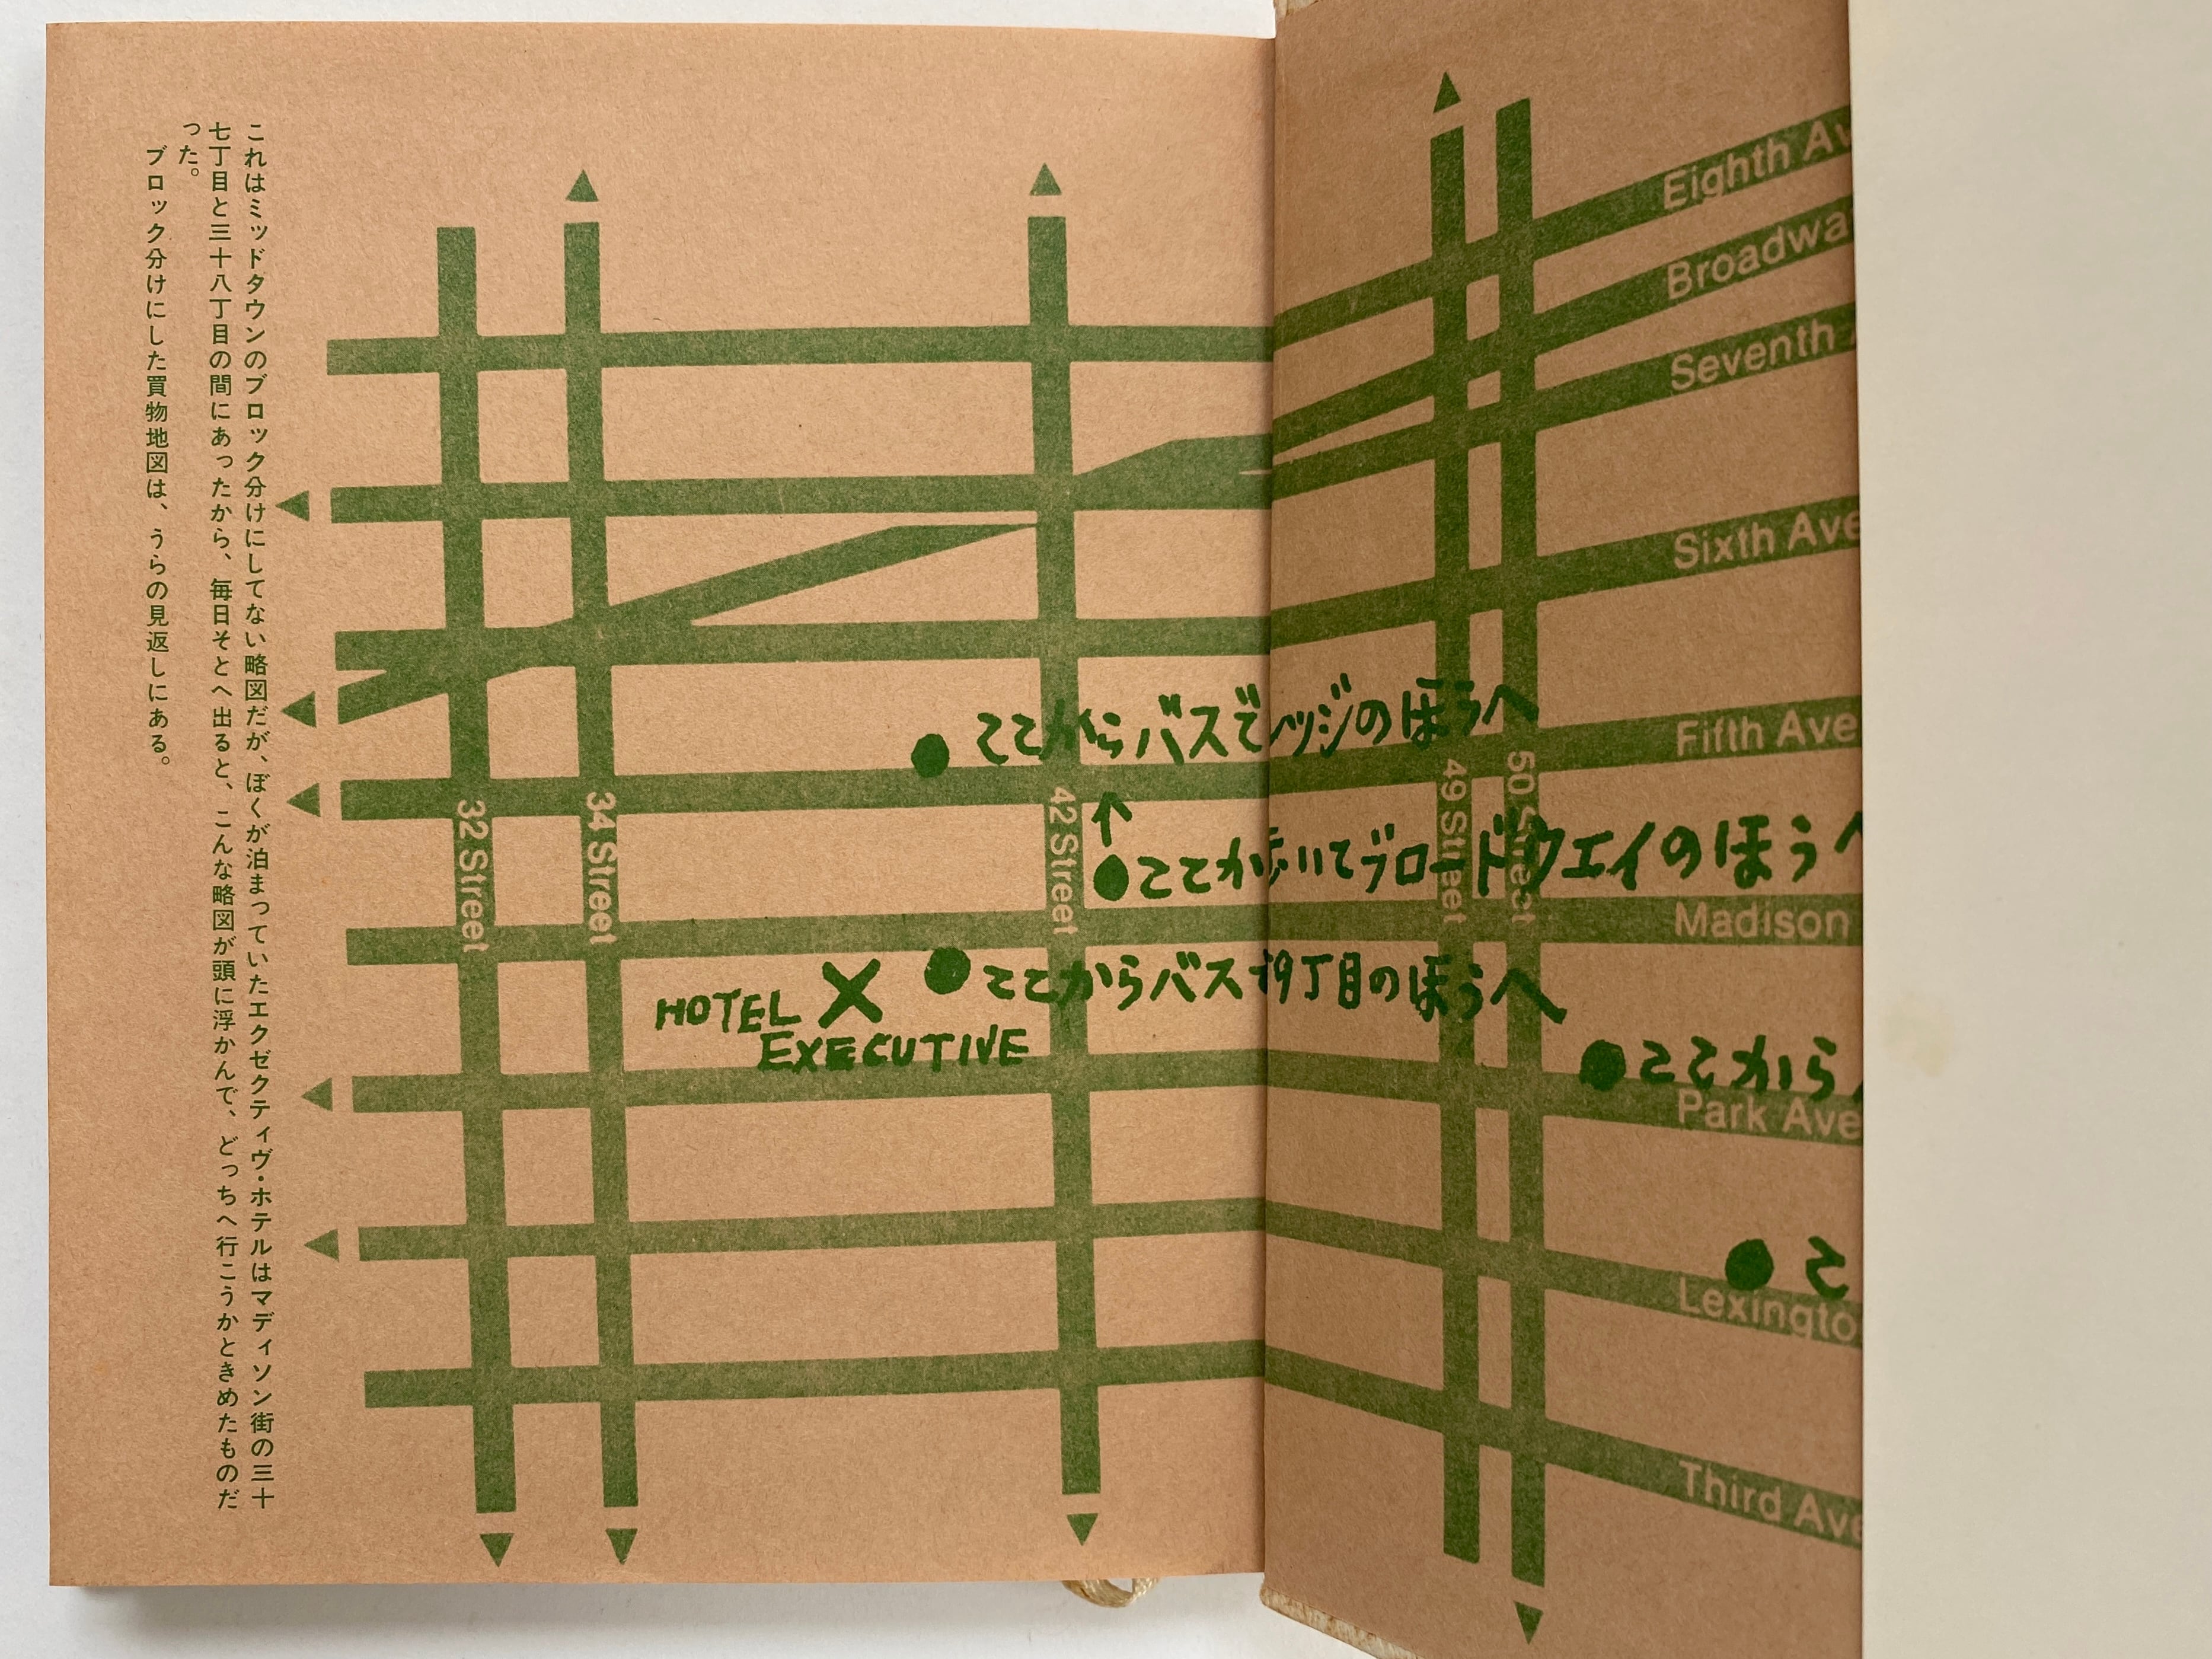 これはミッドタウンのブロック分けにしてない略図だが、ぼくが泊まっていたエクゼクティヴ・ホテルはマディソン街の三十
七丁目と三十八丁目の間にあったから、毎日そとへ出ると、こんな略図が頭に浮かんで、どっちへ行こうかときめたものだ
った。
ブロック分けにした買物地図は、うらの見返しにある。
Eighth Av
Broadwa
Seventh
Sixth Ave
ここからバスで ッジのほうへ
Fifth Ave
32 Street
34 Street
42 Street
49 Street
50 Street
ここか 歩いてブロードウエイのほうへ
Madison
ここからバス 9丁目のほうへ
HOTEL
EXECUTIVE
ここから
Park Ave
こ
Lexingto
Third Ave